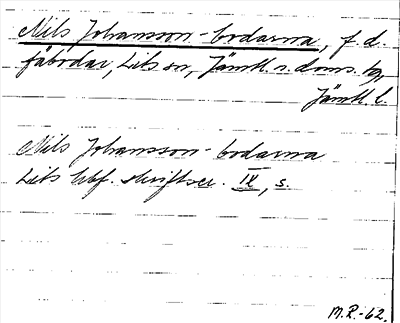 Nils Johansson-bodarna, f.d.
fäbodar, Lits sn, Jämtl. n. doms. tg,
Jämtl. l.
Nils Johansson-bodarna
Lits hbf. skriftser. IX, s.
M.R.-62.